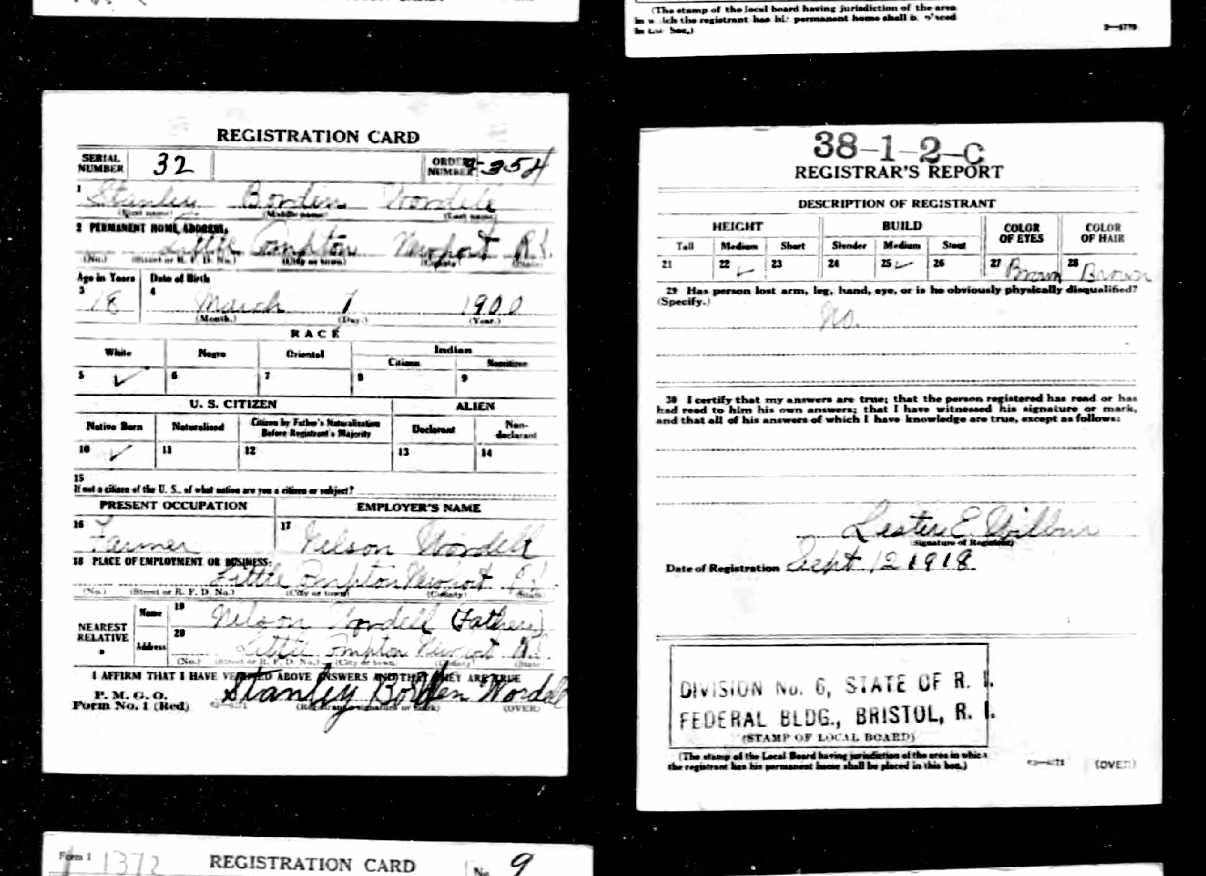 (The stamp of the local board having jurisdiction of the area
in which the registrant has his permanent home shall be placed
in this box.)
REGISTRATION CARD
SERIAL NUMBER 32 ORDER NUMBER 354
1 Stanley Borden Wordell
(First name) (Middle name) (Last name)
2 PERMANENT HOME ADDRESS:
Little Compton Newport R.I.
(No.) (Street or R. F. D. No.) (City or town) (County) (State)
Age in Years Date of Birth
3 18 4 March 7 1900
(Month.) (Day.) (Year.)
RACE
White Negro Oriental Indian
Citizen Noncitizen
5 ✓ 6 7 8 9
U. S. CITIZEN ALIEN
Native Born Naturalized Citizen by Father's Naturalization Before Registrant's Majority Declarant Non-declarant
10 ✓ 11 12 13 14
15
If not a citizen of the U. S., of what nation are you a citizen or subject?
PRESENT OCCUPATION EMPLOYER'S NAME
16 Farmer 17 Nelson Wordell
18 PLACE OF EMPLOYMENT OR BUSINESS:
Little Compton Newport R.I.
(No.) (Street or R. F. D. No.) (City or town) (County) (State)
NEAREST RELATIVE Name 19 Nelson Wordell (Father)
Address 20 Little Compton Newport R.I.
(No.) (Street or R. F. D. No.) (City or town) (County) (State)
I AFFIRM THAT I HAVE VERIFIED ABOVE ANSWERS AND THAT THEY ARE TRUE
P. M. G. O.
Form No. 1 (Red) Stanley Borden Wordell
(Registrant's signature or mark) (OVER)
38-1-2-C
REGISTRAR'S REPORT
DESCRIPTION OF REGISTRANT
HEIGHT BUILD COLOR OF EYES COLOR OF HAIR
Tall Medium Short Slender Medium Stout
21 22 ✓ 23 24 25 ✓ 26 27 Brown 28 Brown
29 Has person lost arm, leg, hand, eye, or is he obviously physically disqualified?
(Specify.)
No.
30 I certify that my answers are true; that the person registered has read or has
had read to him his own answers; that I have witnessed his signature or mark,
and that all of his answers of which I have knowledge are true, except as follows:
Lester E Wilbur
(Signature of Registrar)
Date of Registration Sept 12 1918
DIVISION No. 6, STATE OF R. I.
FEDERAL BLDG., BRISTOL, R. I.
(STAMP OF LOCAL BOARD)
(The stamp of the Local Board having jurisdiction of the area in which
the registrant has his permanent home shall be placed in this box.)
(OVER)
Form 1 1372 REGISTRATION CARD No. 9